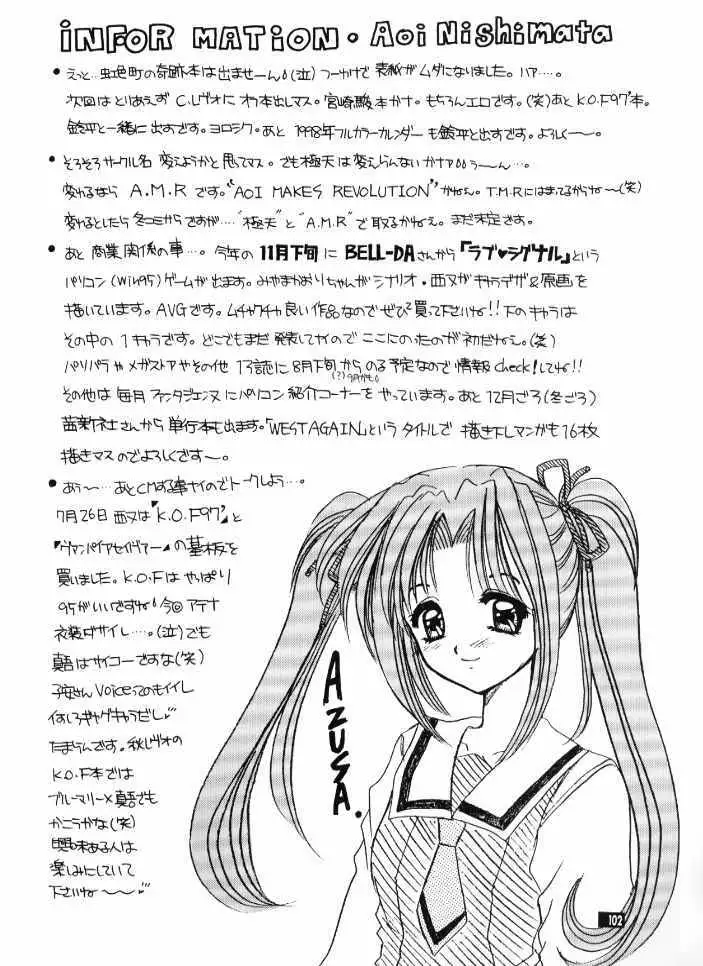 INFORMATION・Aoi Nishimata
・えっと…虹色町の奇跡本は出ませーん！(泣)つーかけで表紙がムダになりました。ハァ…。
次回はとりあえずC.レヴォにオフ本出しマス。宮崎駿本かナ。もちろんエロです。(笑)あとK.O.F97'本。
鈴平と一緒に出すです。ヨロシク。あと1998年フルカラーカレンダーも鈴平と出すです。よろしく〜。
・そろそろサークル名変えようかと思ってマス。でも極天は変えらんないかナァ う〜ん…。
変わるならA.M.Rです。"AOI MAKES REVOLUTION"かねぇ。T.M.Rにはまってるからね〜(笑)
変わるとしたら冬コミからですが…."極天"と"A.M.R"で取るかねぇ。まだ未定です。
・あと商業関係の事…。今年の11月下旬にBELL-DAさんから「ラブ♥シグナル」という
パソコン(Win95)ゲームが出ます。みやまかおりちゃんがシナリオ・西又がキャラデザ&原画を
描いています。AVGです。ムチャクチャ良い作品なのでぜひ買って下さいね!!下のキャラは
その中の1キャラです。どこでもまだ発表してナイのでここにのたのが初だねぇ。(笑)
パソパラやメガストアやその他13誌に8月下旬からのる予定なので情報check!してね!!
(?)9月かも。
その他は毎月ファンタジェンヌにパソコン紹介コーナーをやっています。あと12月ごろ(冬ごろ)
茜新社さんから単行本も出ます。「WEST AGAIN」というタイトルで描き下しマンガも16枚
描きマスのでよろしくです〜。
・あぅ〜…あとCMする事ナイのでトークしよう…。
7月26日西又は『K.O.F97'』と
『ヴァンパイアセイヴァー』の基板を
買いました。K.O.Fはやっぱり
95がいいですね！今のアテナ
衣装ダサイし…。(泣)でも
真吾はサイコーですな(笑)
子安さんVoiceってのもイイし
何しろギャグキャラだし
たまらんです。秋レヴォの
K.O.F本では
ブルーマリー×真吾でも
かこうかな(笑)
興味ある人は
楽しみにしていて
下さいね〜〜
AZUSA.
102